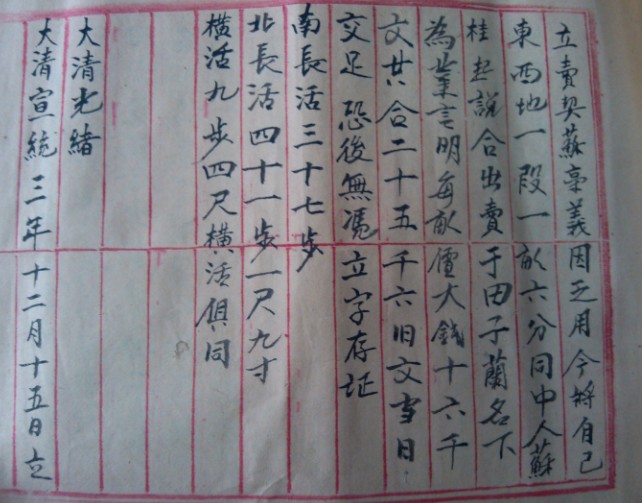 立賣契蘇秉義因乏用今將自己
東西地一段一畝六分同中人蘇
桂起說合出賣于田子蘭名下
為業言明每畝價大錢十六千
文共合二十五千六旧文當日
交足恐後無憑立字存证
南長活三十七步
北長活四十一步一尺九寸
橫活九步四尺橫活俱同
大清光緒
大清宣統三年十二月十五日立